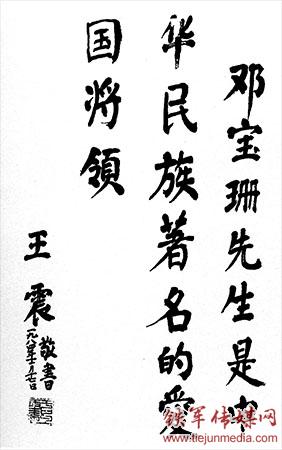 邓宝珊先生是中
华民族著名的愛
国将領
王震敬書
铁军传媒网
www.tiejunmedia.com